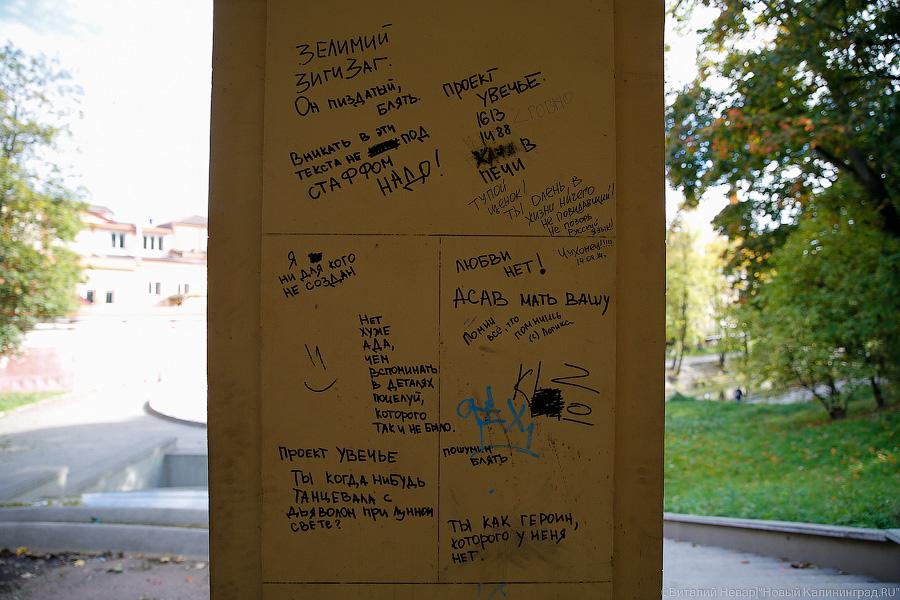 ЗЕЛИМИЙ
ЗИГИЗАГ.
ОН ПИЗДАТЫЙ,
БЛЯТЬ.
ВНИКАТЬ В ЭТИ
ТЕКСТА НЕ ПОД
СТАФФОМ
НАДО!
ПРОЕКТ
УВЕЧЬЕ.
1613
1488
В
ПЕЧИ
ТУПОЙ
ЩЕНОК!
ТЫ ОЛЕНЬ, В
ЖИЗНИ НИЧЕГО
НЕ ПОВИДАВШИЙ!
НЕ ПОЗОРЬ
РУССКИЙ
ЯЗЫК!
Я
НИ ДЛЯ КОГО
НЕ СОЗДАН
ЛЮБВИ
НЕТ!
АСАВ МАТЬ ВАШУ
ПОМНИ
ВСЁ, ЧТО
ПОМНИШЬ
(с) Логика
НЕТ
ХУЖЕ
АДА,
ЧЕМ
ВСПОМИНАТЬ
В ДЕТАЛЯХ
ПОЦЕЛУЙ,
КОТОРОГО
ТАК И НЕ БЫЛО.
ПОШУМИМ
БЛЯТЬ
ПРОЕКТ УВЕЧЬЕ
ТЫ КОГДА НИБУДЬ
ТАНЦЕВАЛА С
ДЬЯВОЛОМ ПРИ ЛУННОМ
СВЕТЕ?
ТЫ КАК ГЕРОИН,
КОТОРОГО У МЕНЯ
НЕТ.
© Виталий Невар|"Новый Калининград.RU"